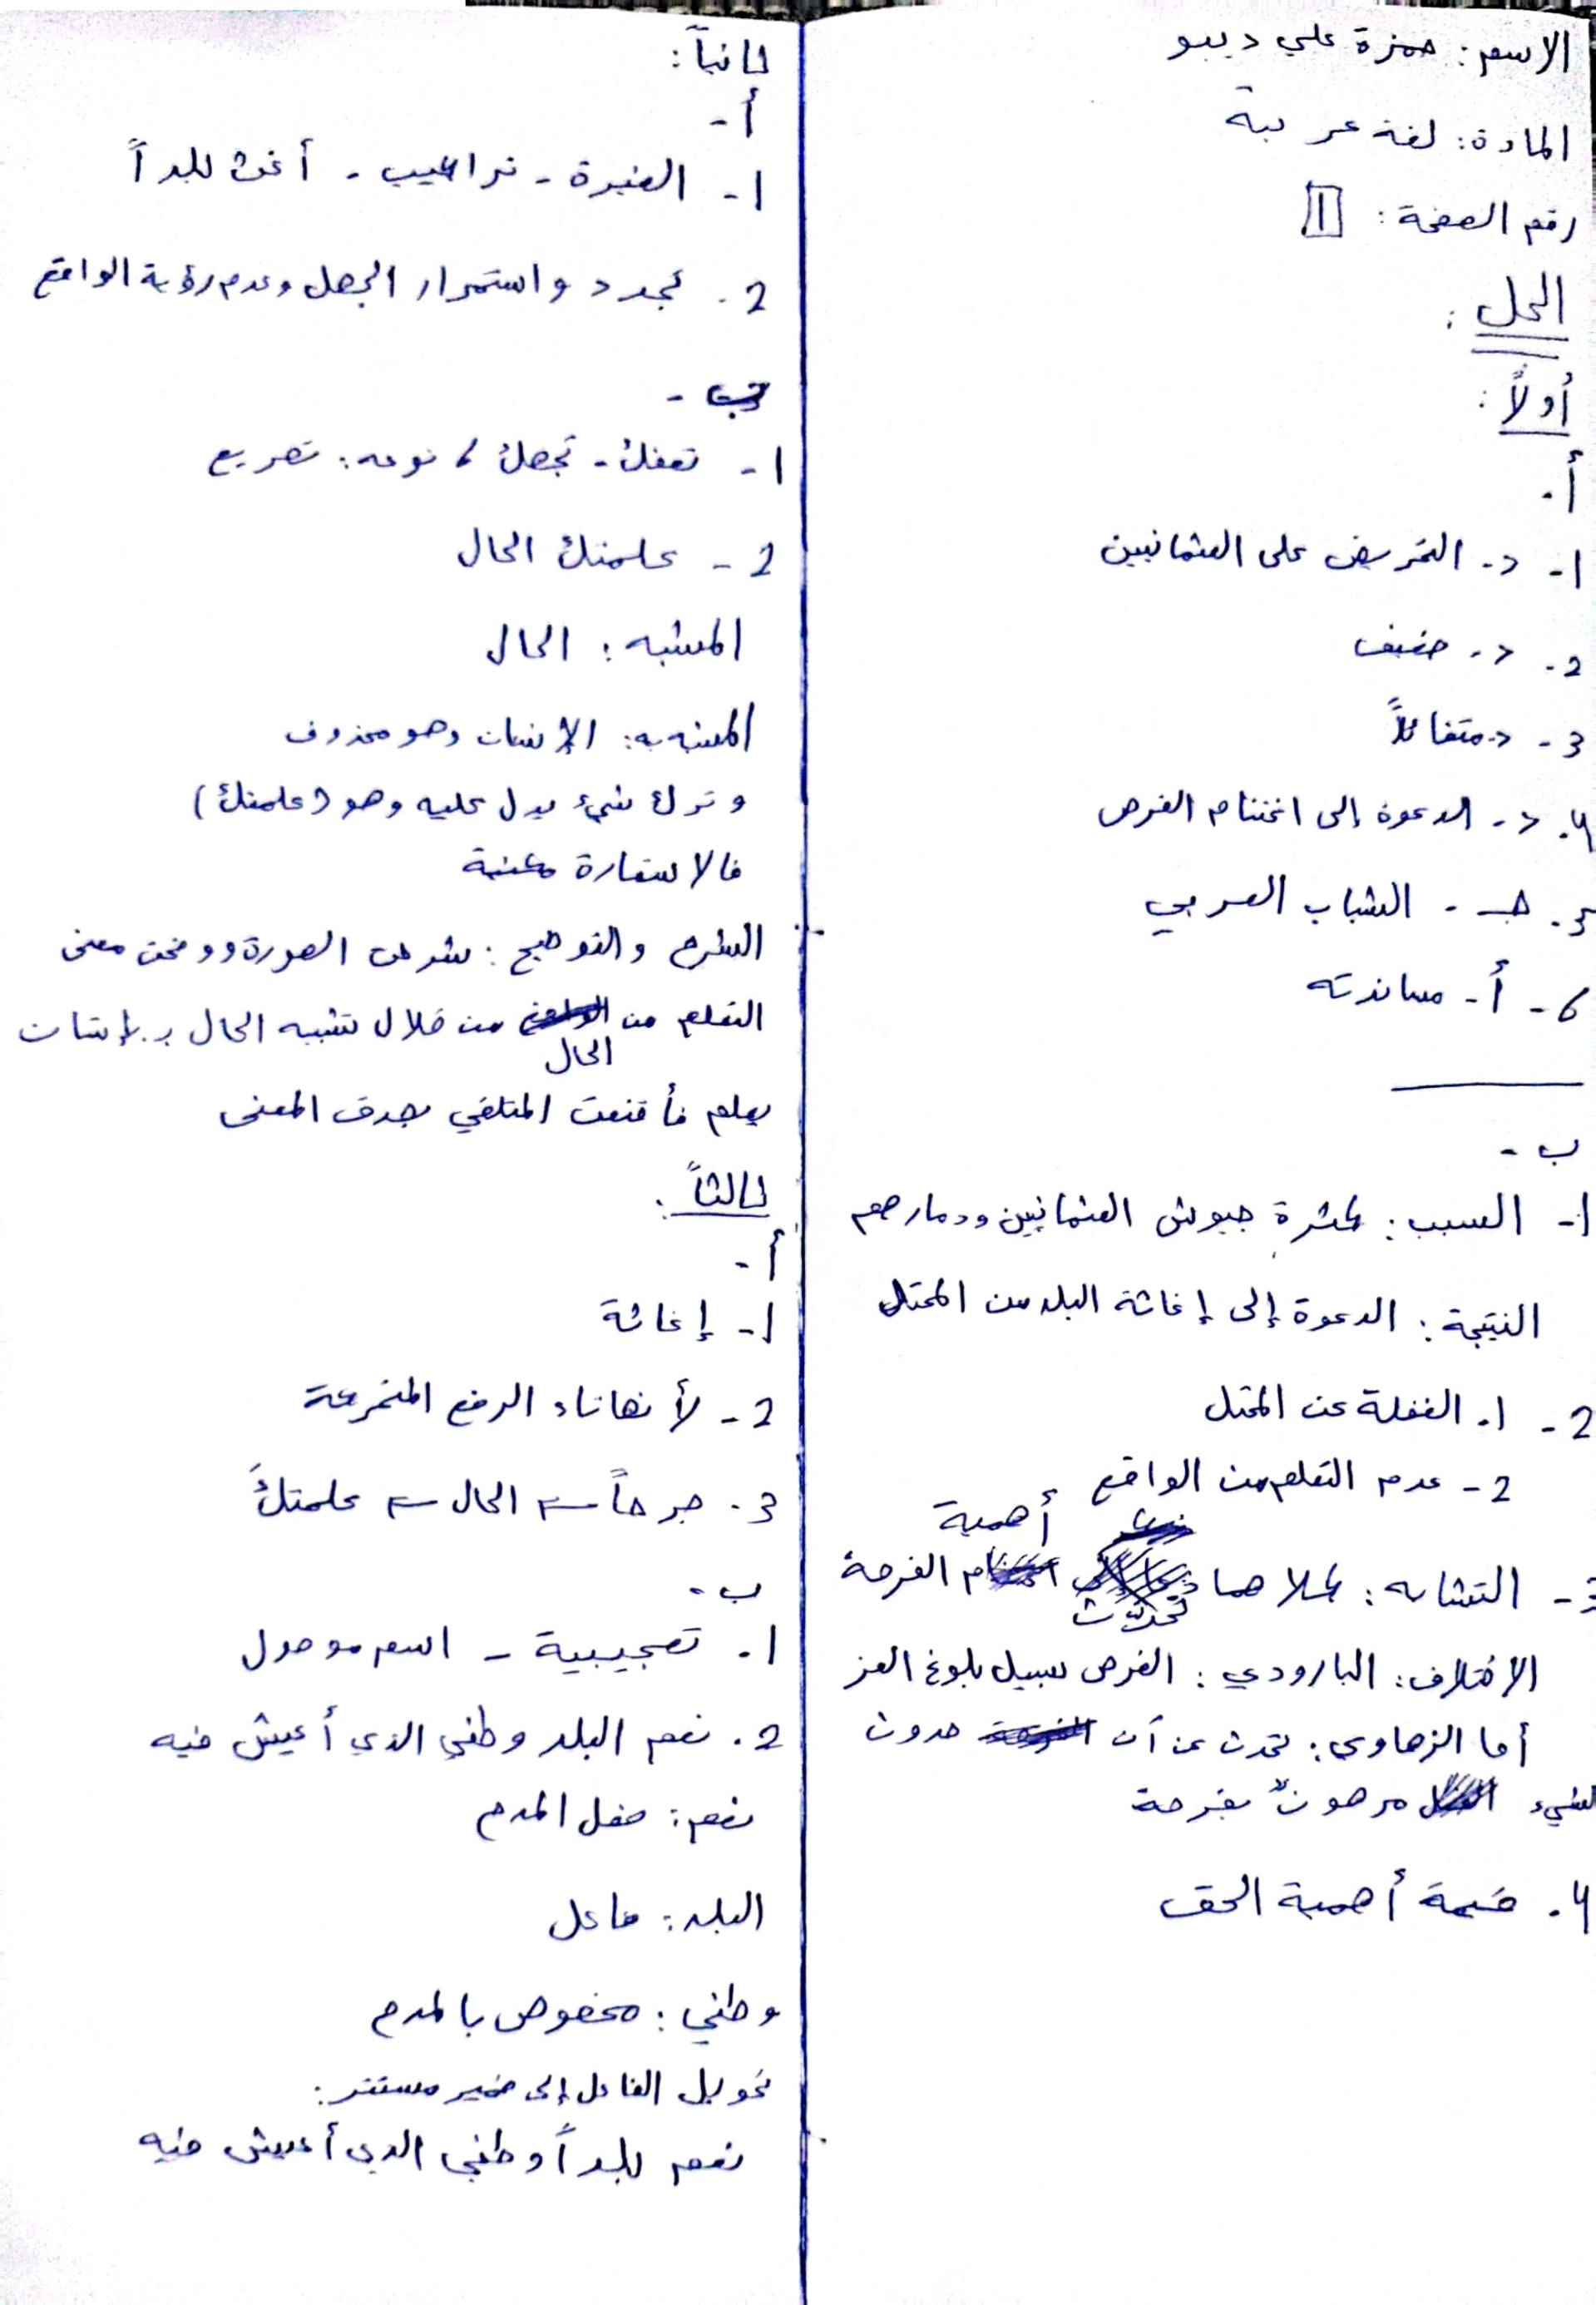 الاسم: حمزة علي ديبو
المادة: لغة عربية
رقم الصفحة: 1
الحل:
أولاً:
أ.
1- د. التحريض على العثمانيين
2. د. خفيف
3- د. متفائلاً
4. د. الدعوة إلى اغتنام الفرص
5. جـ. الشباب العربي
6- أ- مساندته
ب-
1- السبب: كثرة جيوش العثمانيين ودمارهم
النتيجة: الدعوة إلى إغاثة البلد من المحتل
2- 1. الغفلة عن المحتل
2- عدم التعلم من الواقع
3- التشابه: كلاهما تحدث أهمية الفرصة
الاختلاف: البارودي: الفرص سبيل بلوغ العز
أما الزهاوي: تحدث عن أن حدوث
الشيء مرهونٌ بفرصة
4. قيمة أهمية الحق
ثانياً:
أ-
1- الغيرة - تراكيب - أغث بلداً
2. تجدد واستمرار الجهل وعدم رؤية الواقع
ب-
1- تغفلُ - تجهلُ، نوعه: تصريع
2- علمتك الحال
المشبه: الحال
المشبه به: الإنسان وهو محذوف
وترك شيء يدل عليه وهو (علمتك)
فالاستعارة مكنية
الشرح والتوضيح: شرحت الصورة ووضحت معنى
التعلم من الحال من خلال تشبيه الحال بإنسان
يعلم فأقنعت المتلقي بصدق المعنى
ثالثاً:
أ-
1- إغاثة
2- لأنها تاء الرفع المتحركة
3. جرحاً ⇐ الحال ⇐ علمتكَ
ب-
1. تعجيبية - اسم موصول
2. نعم البلد وطني الذي أعيش فيه
نعم: فعل المدح
البلد: فاعل
وطني: مخصوص بالمدح
تحويل الفاعل إلى ضمير مستتر:
نعم بلداً وطني الذي أعيش فيه